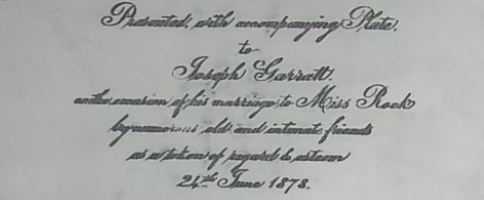 Presented, with accompanying Plate.
to
Joseph Garratt.
on the occasion of his marriage to Miss Rock
by numerous old and intimate friends
as a token of regard & esteem
24th June 1878.